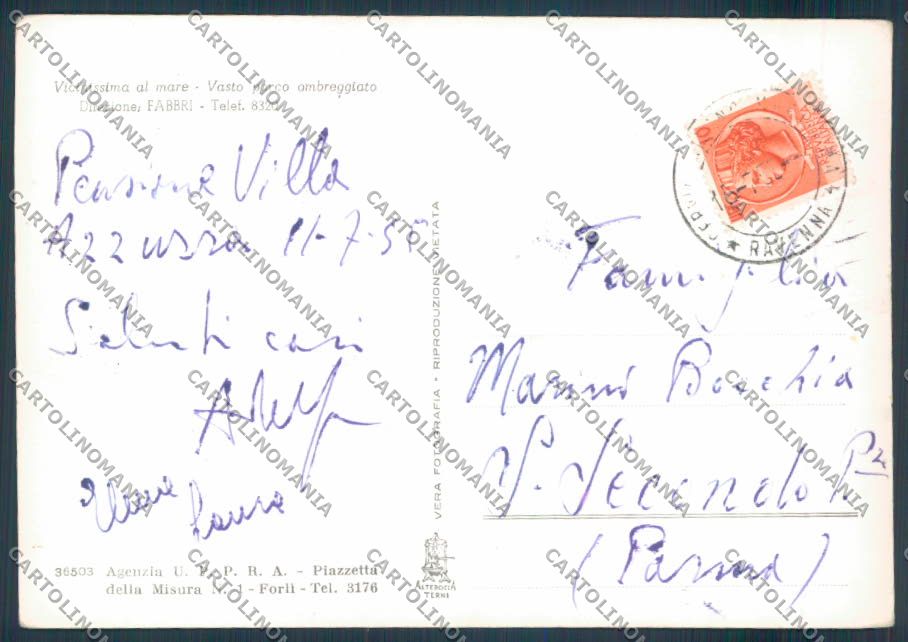 Vicinissima al mare - Vasto parco ombreggiato
Direzione: FABBRI - Telef.
Pensione Villa
Azzurra 11-7-55
Saluti cari
Adolfo
Laura
36503 Agenzia U. P. P. R. A. - Piazzetta
della Misura N. 1 - Forlì - Tel. 3176
VERA FOTOGRAFIA - RIPRODUZIONE VIETATA
ALTEROCCA
TERNI
RAVENNA
Famiglia
Marini Bocchia
S. Secondo Pse
(Parma)
CARTOLINOMANIA